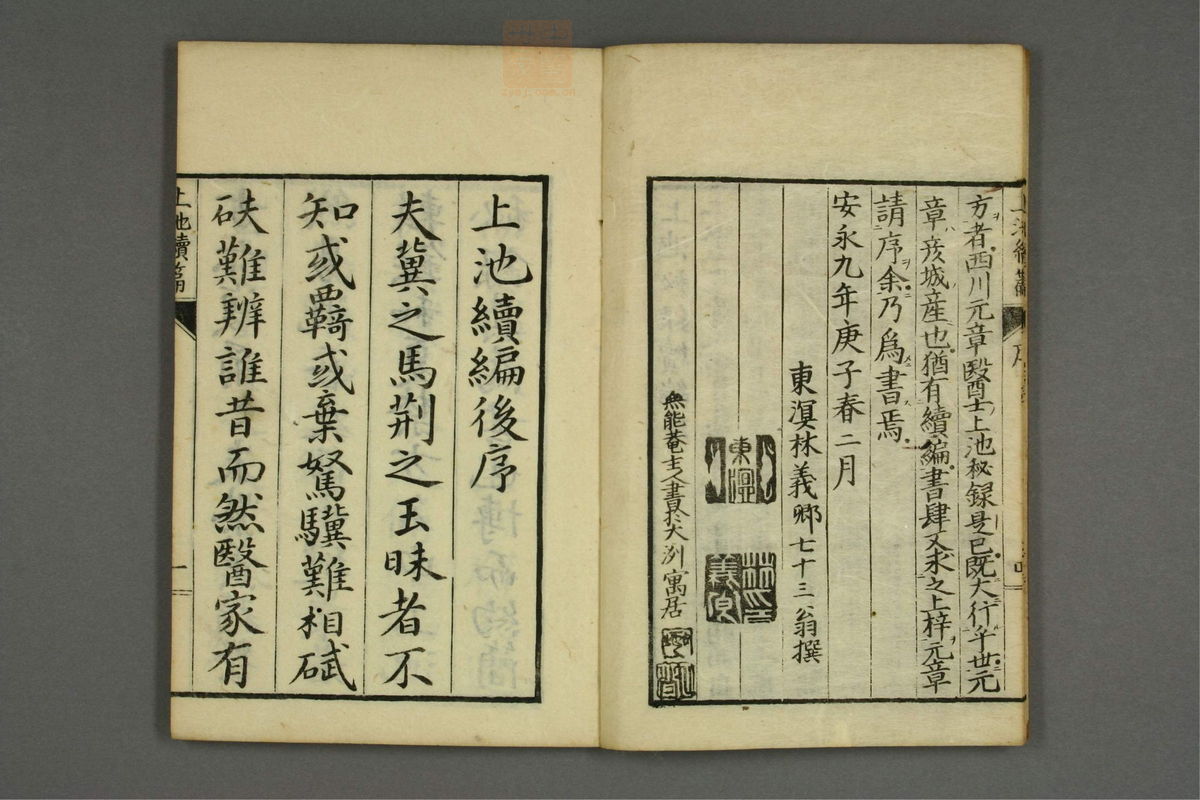 方者西川元章醫士上池秘録是已既大行乎世元
章彦城産也猶有續編書肆又求之上梓元章
請序余乃爲書焉
安永九年庚子春二月
東溟林義卿七十三翁撰
東溟
林義卿
無能菴主人書於大洌寓居
上池續編後序
夫冀之馬荆之玉昧者不
知或覊或棄駑驥難相碔
砆難辨誰昔而然醫家有
上池續篇
一